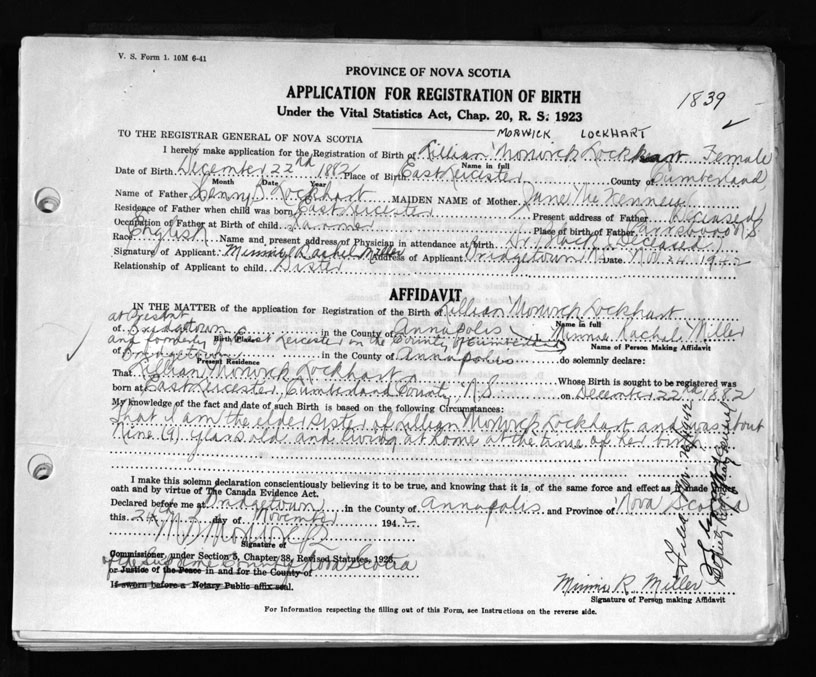 V. S. Form 1. 10M 6-41
PROVINCE OF NOVA SCOTIA
APPLICATION FOR REGISTRATION OF BIRTH
1839
Under the Vital Statistics Act, Chap. 20, R. S. 1923
MORWICK LOCKHART
TO THE REGISTRAR GENERAL OF NOVA SCOTIA
I hereby make application for the Registration of Birth of Lillian Morwick Lockhart Female
Name in full
Date of Birth December 22nd 1882 Place of Birth East Leicester County of Cumberland
Month Date Year
Name of Father Lockhart MAIDEN NAME of Mother Jane
Residence of Father when child was born East Leicester Present address of Father Deceased
Occupation of Father at Birth of child Farmer Place of birth of Father N.S.
Race English Name and present address of Physician in attendance at birth Dr. Deceased
Signature of Applicant Minnie Rachel Miller Address of Applicant Bridgetown N.S. Date Nov 24 1942
Relationship of Applicant to child Sister
AFFIDAVIT
IN THE MATTER of the application for Registration of the Birth of Lillian Morwick Lockhart
Name in full
at present
of Bridgetown in the County of Annapolis Minnie Rachel Miller
Birth Place Name of Person Making Affidavit
and formerly of East Leicester in the County of Cumberland
of Bridgetown in the County of Annapolis do solemnly declare:
Present Residence
That Lillian Morwick Lockhart Whose Birth is sought to be registered was
born at East Leicester, Cumberland County, N.S. on December 22nd 1882
My knowledge of the fact and date of such Birth is based on the following Circumstances:
That I am the elder sister of Lillian Morwick Lockhart and was about
Nine (9) years old and living at home at the time of her birth
I make this solemn declaration conscientiously believing it to be true, and knowing that it is of the same force and effect as if made under
oath and by virtue of The Canada Evidence Act.
Declared before me at Bridgetown in the County of Annapolis and Province of Nova Scotia
this 24th day of November 1942
Signature of
Commissioner, under Section 5, Chapter 38, Revised Statutes, 1923
or Justice of the Peace in and for the County of
of the Supreme Court of Nova Scotia
If sworn before a Notary Public affix seal.
Minnie R. Miller
Signature of Person making Affidavit
For Information respecting the filling out of this Form, see Instructions on the reverse side.